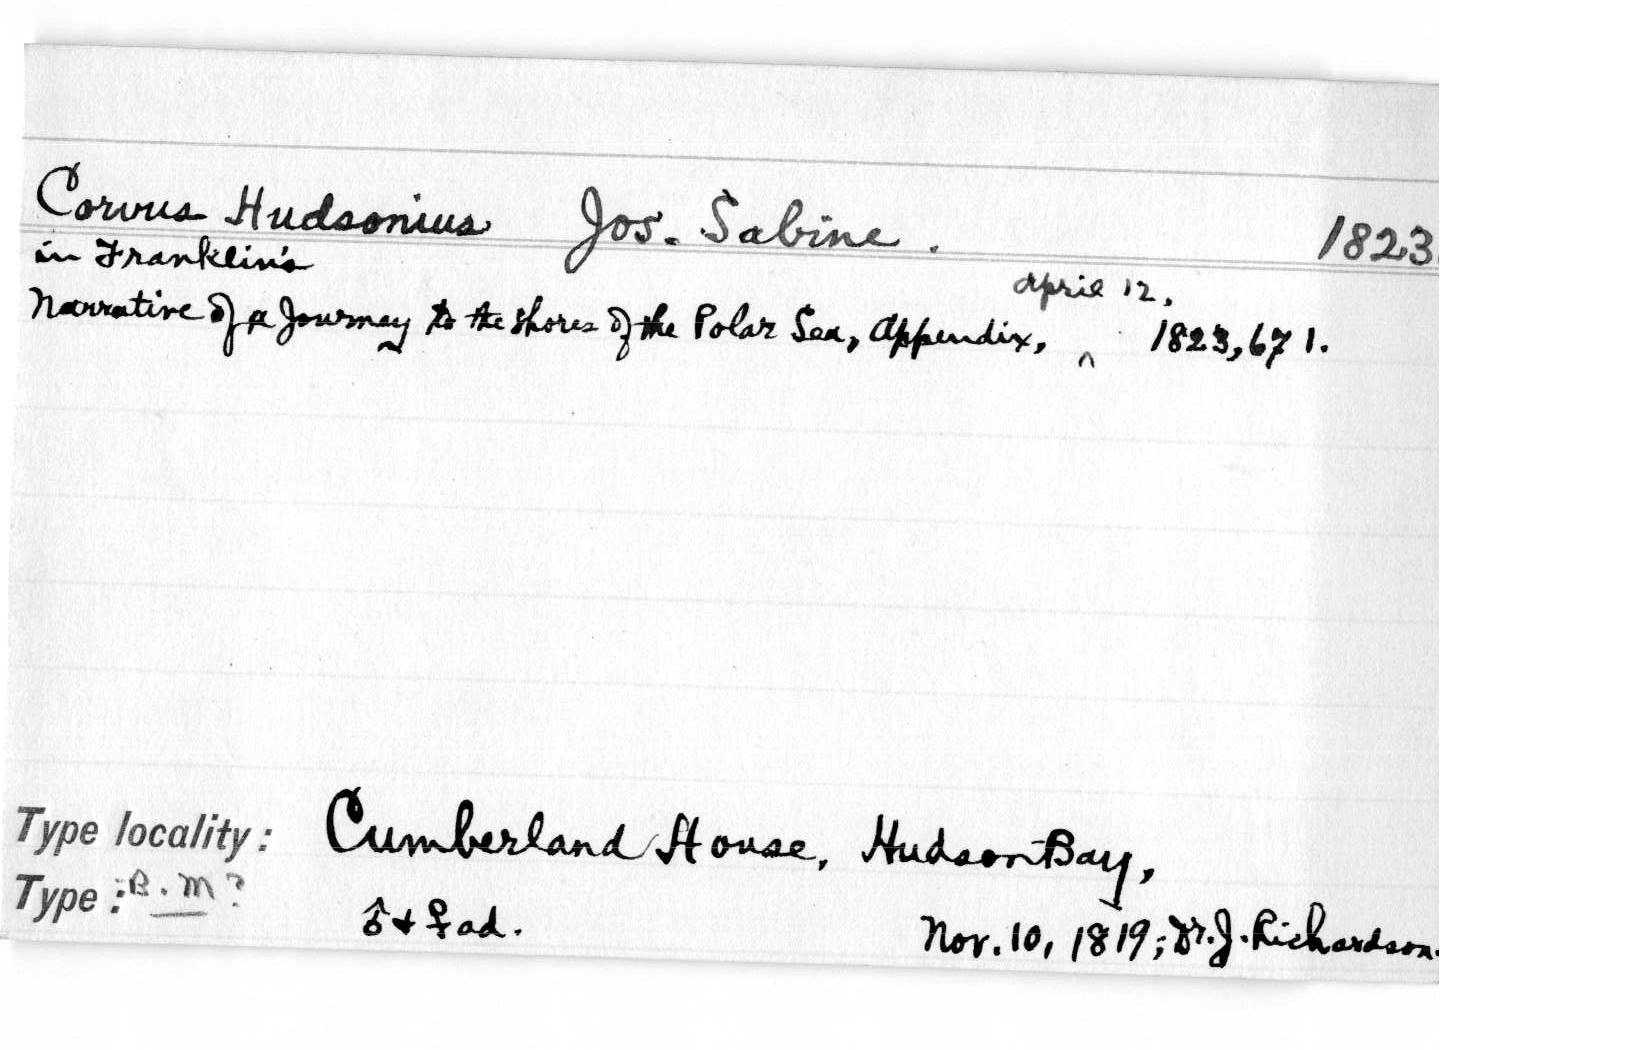 Corvus Hudsonius Jos. Sabine. 1823.
in Franklin's
april 12,
Narrative of a Journey to the shores of the Polar Sea, Appendix, ^ 1823, 671.
Type locality: Cumberland House, Hudson Bay,
Type: B.M?
♂ + ♀ ad. Nov. 10, 1819; Dr. J. Richardson.